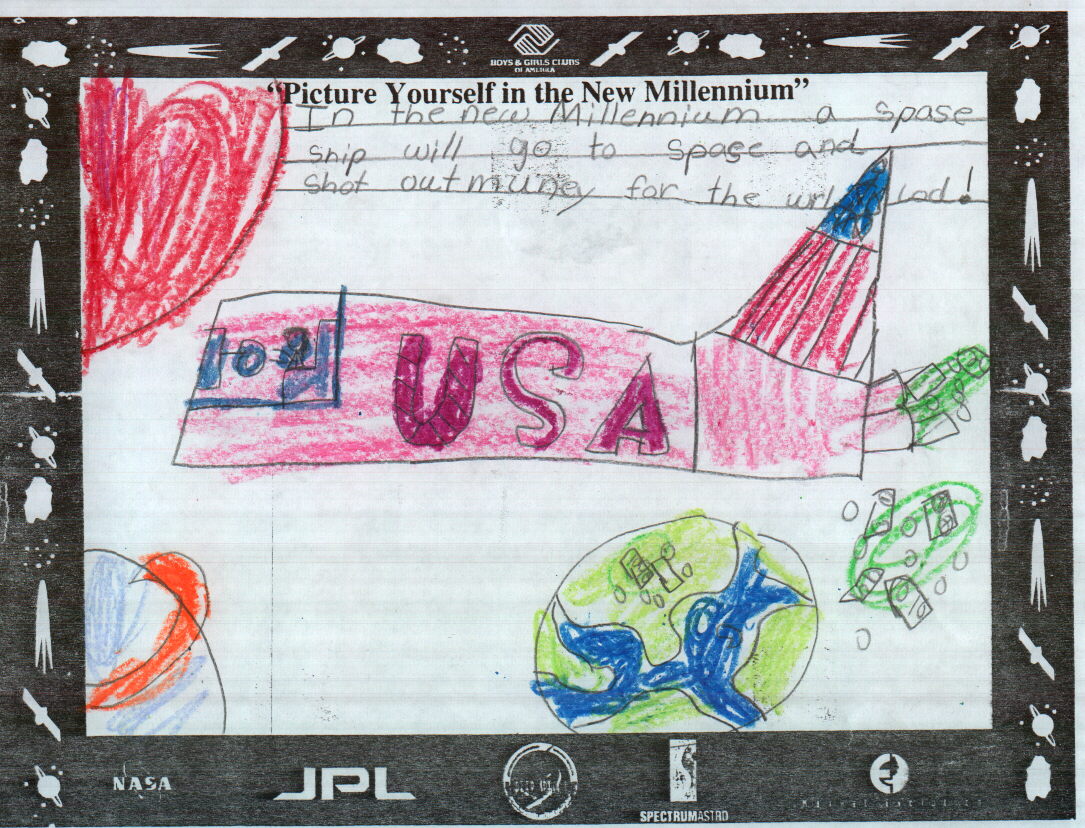 BOYS & GIRLS CLUBS
OF AMERICA
"Picture Yourself in the New Millennium"
In the new Millennium a Spase
ship will go to spase and
shot out muney for the
USA
NASA
JPL
SPECTRUMASTRO